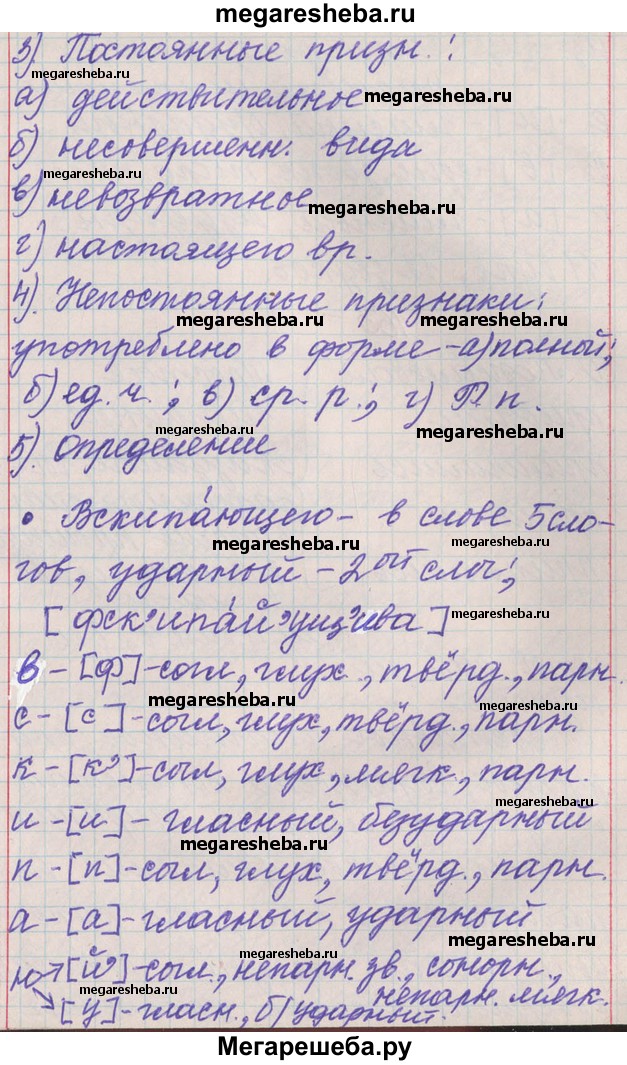 megaresheba.ru
3). Постоянные призн.:
megaresheba.ru
а) действительное
megaresheba.ru
б) несовершенн. вида
megaresheba.ru
в) невозвратное
megaresheba.ru
г) настоящего вр.
4). Непостоянные признаки:
megaresheba.ru
megaresheba.ru
употреблено в форме - а) полной;
б) ед. ч.; в) ср. р.; г) П. п.
megaresheba.ru
megaresheba.ru
5). Определение
• Вскипа́ющего - в слове 5 сло-
megaresheba.ru
megaresheba.ru
гов, ударный - 2ой слог;
[фск'ипа́й'ущ'ива]
megaresheba.ru
в - [ф] - согл, глух., твёрд., парн.
megaresheba.ru
с - [с] - согл, глух, твёрд., парн.
megaresheba.ru
к - [к'] - согл, глух, мягк., парн.
megaresheba.ru
и - [и] - гласный, безударный
megaresheba.ru
п - [п] - согл, глух, твёрд., парн.
а - [а] - гласный, ударный
megaresheba.ru
megaresheba.ru
ю → [й'] - согл., непарн. зв., сонорн.,
megaresheba.ru
непарн. мягк.
→ [у] - гласн., б/ударный.
Мегарешеба.ру